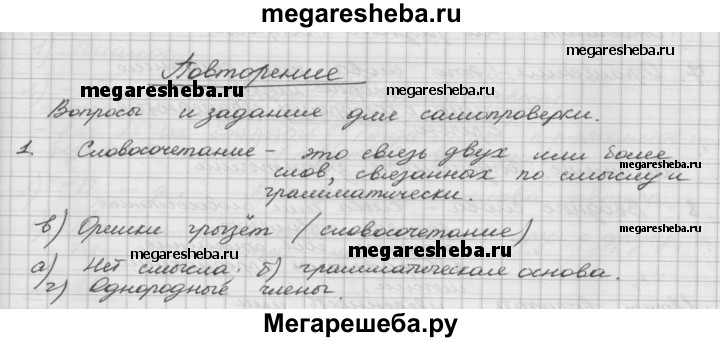 megaresheba.ru
megaresheba.ru
Повторение
megaresheba.ru
megaresheba.ru
Вопросы и задание для самопроверки.
1. Словосочетание – это связь двух или более
megaresheba.ru
слов, связанных по смыслу и
грамматически.
megaresheba.ru
в) Орешки грызёт (словосочетание)
megaresheba.ru
megaresheba.ru
а) Нет смысла. б) грамматическая основа.
г) Однородные члены.
megaresheba.ru
megaresheba.ru
Мегарешеба.ру